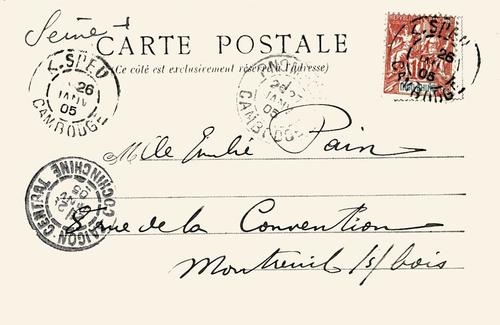 Seine
CARTE POSTALE
(Ce côté est exclusivement réservé à l'adresse)
K-SPEU
26
JANV
05
CAMBODGE
K-SPEU
26
JANV
05
CAMBODGE
26
JANV
05
CAMBODGE
10
Mlle Emilie Pain
SAIGON-CENTRAL COCHINCHINE
05
de la Convention
Montreuil s/ bois